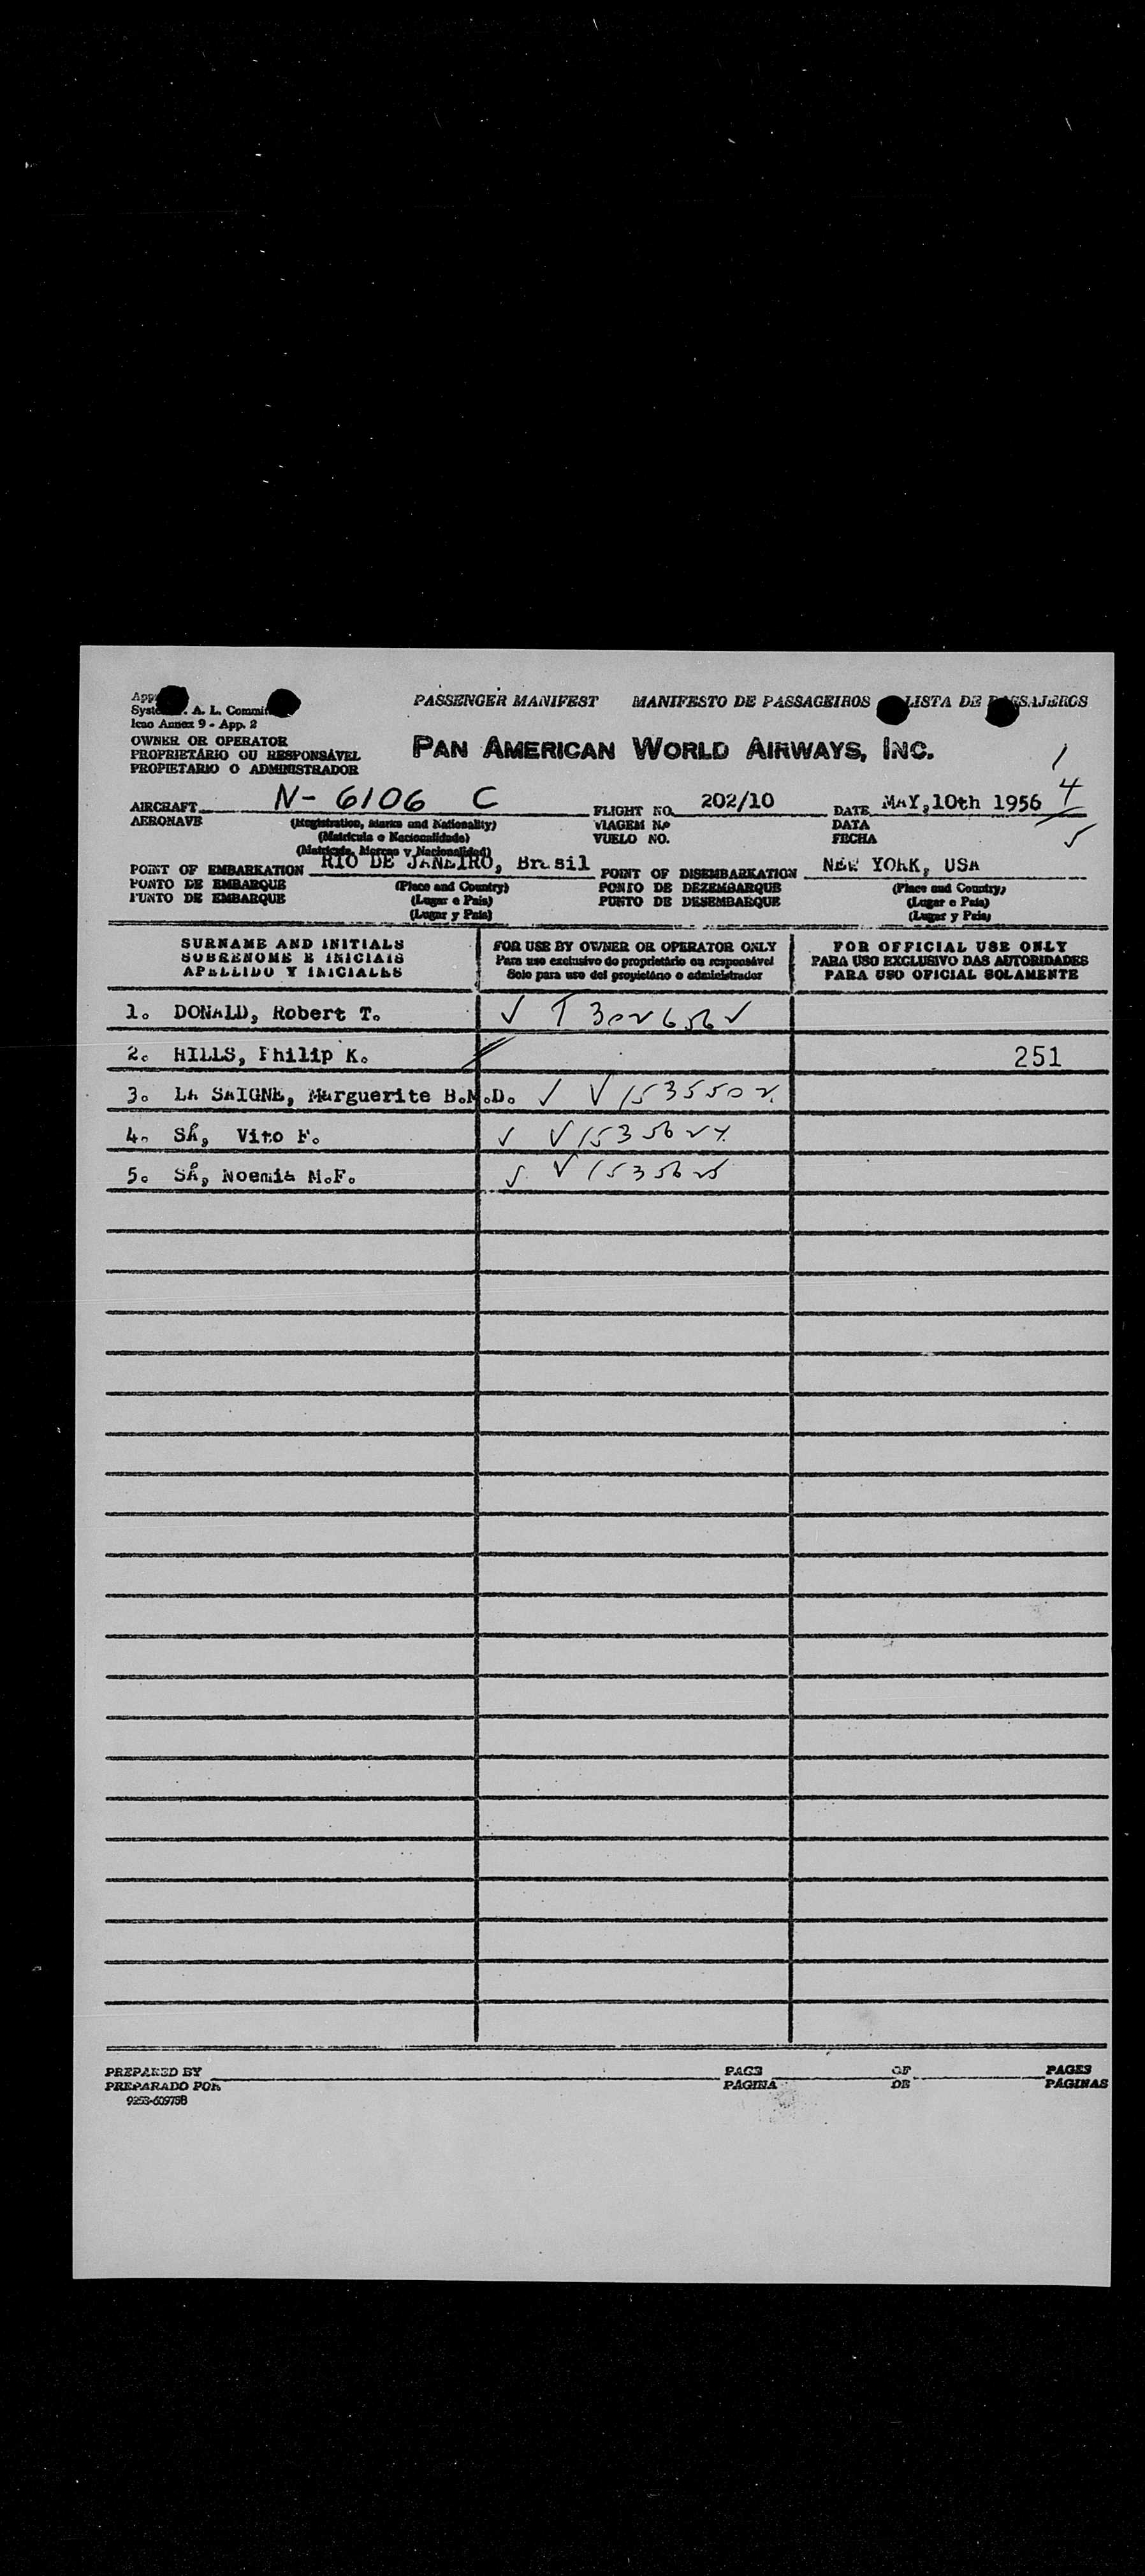 PASSENGER MANIFEST MANIFESTO DE PASSAGEIROS LISTA DE
A. L.
Icao Annex 9 - App. 2
OWNER OR OPERATOR
PROPRIETÁRIO OU RESPONSÁVEL
PROPIETARIO O ADMINISTRADOR
PAN AMERICAN WORLD AIRWAYS, INC.
1
AIRCRAFT N-6106 C FLIGHT NO. 202/10 DATE MAY, 10th 1956 4
AERONAVE (Registration, Marks and Nationality) VIAGEM N.º DATA
(Matrícula e Nacionalidade) VUELO NO. FECHA
(Matrícula, Marcas y Nacionalidad)
POINT OF EMBARKATION RIO DE JANEIRO, Brasil POINT OF DISEMBARKATION NEW YORK, USA
PONTO DE EMBARQUE (Place and Country) PONTO DE DEZEMBARQUE (Place and Country)
PUNTO DE EMBARQUE (Lugar e País) PUNTO DE DESEMBARQUE (Lugar e País)
(Lugar y País) (Lugar y País)
SURNAME AND INITIALS FOR USE BY OWNER OR OPERATOR ONLY FOR OFFICIAL USE ONLY
SOBRENOME E INICIAIS Para uso exclusivo do proprietário ou responsável PARA USO EXCLUSIVO DAS AUTORIDADES
APELLIDO Y INICIALES Solo para uso del propietário o administrador PARA USO OFICIAL SOLAMENTE
1. DONALD, Robert T. ✓ T 302656 ✓
2. HILLS, Philip K. 251
3. LA SAIGNE, Marguerite B.M.D. ✓ V1535502
4. SÁ, Vito F. ✓ V153562
5. SÁ, Noemia M.F. ✓ V1535625
PREPARED BY PAGE OF PAGES
PREPARADO POR PÁGINA DE PÁGINAS
9253-60975B